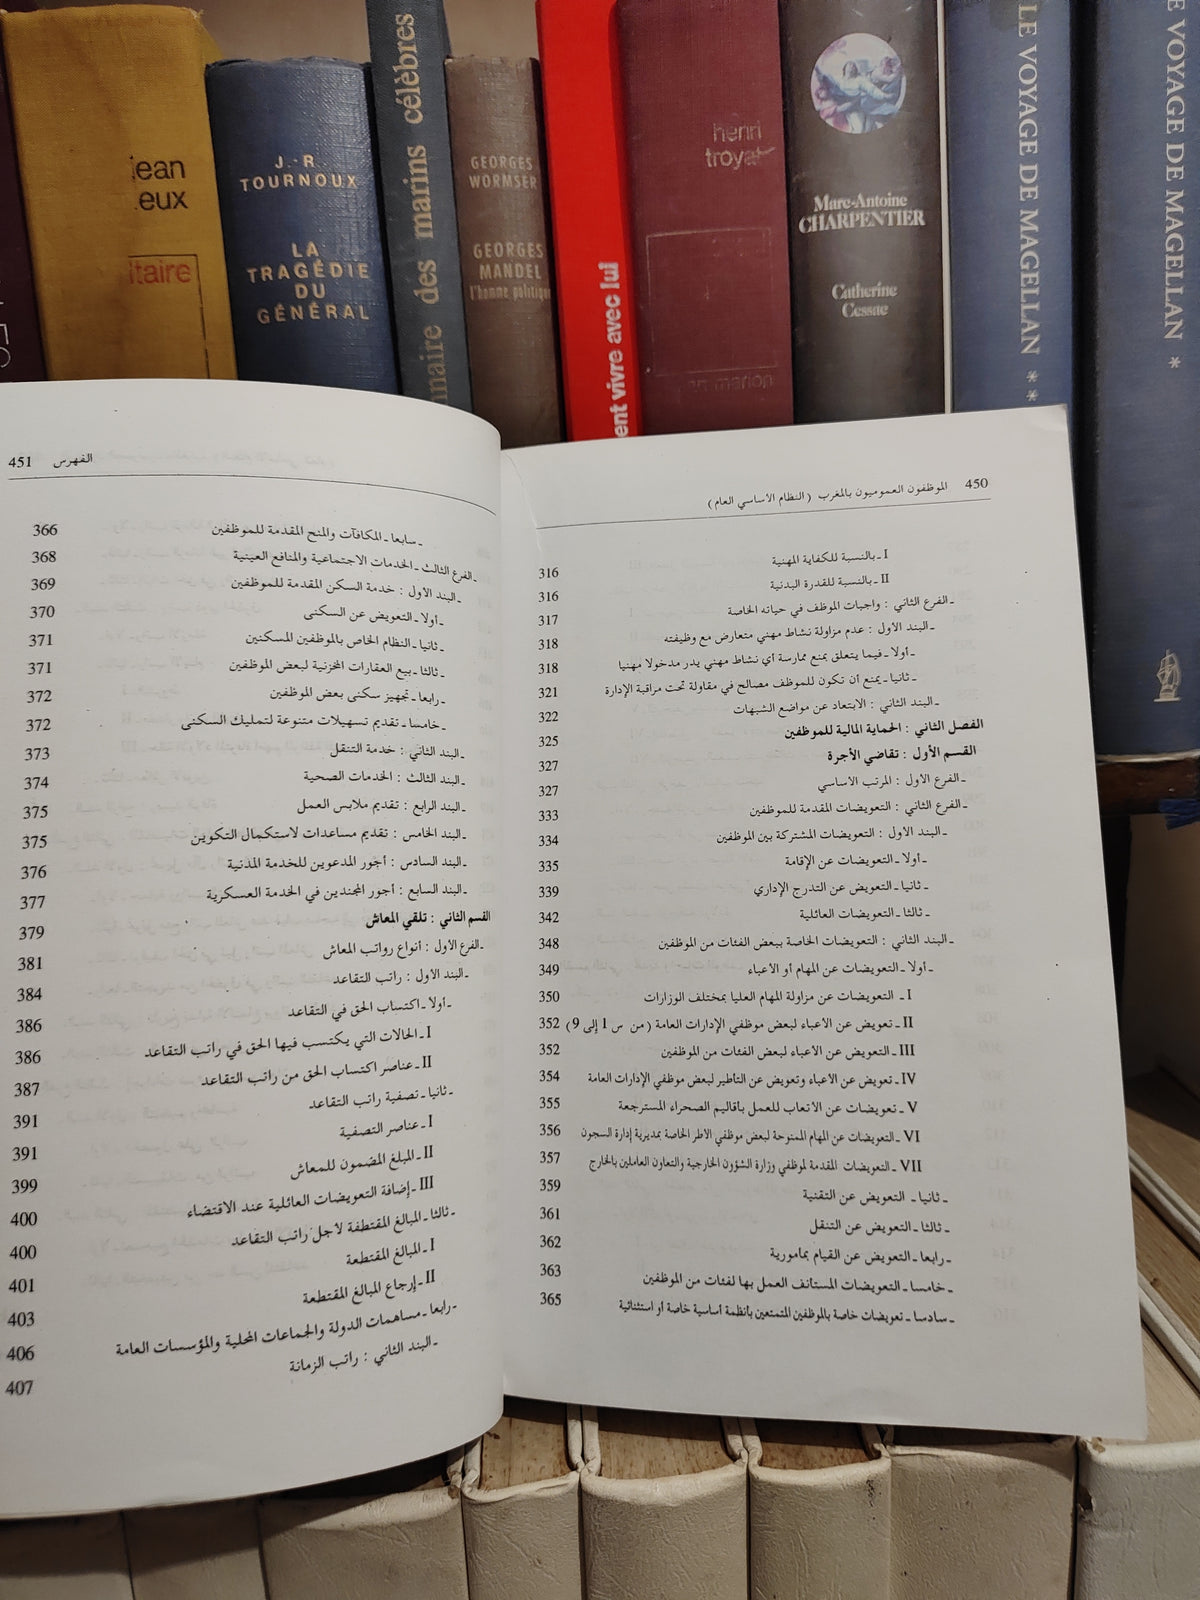 jean
itaire
J.-R. TOURNOUX
LA TRAGÉDIE DU GÉNÉRAL
naire des marins célèbres
GEORGES WORMSER
GEORGES MANDEL
l'homme politique
ent vivre avec lui
henri troyat
Marc-Antoine CHARPENTIER
Catherine Cessac
LE VOYAGE DE MAGELLAN **
E VOYAGE DE MAGELLAN *
450 الموظفون العموميون بالمغرب (النظام الأساسي العام)
I ـ بالنسبة للكفاية المهنية 316
II ـ بالنسبة للقدرة البدنية 316
ـ الفرع الثاني : واجبات الموظف في حياته الخاصة 317
ـ البند الاول : عدم مزاولة نشاط مهني متعارض مع وظيفته 318
ـ أولا ـ فيما يتعلق بمنع ممارسة أي نشاط مهني يدر مدخولا مهنيا 318
ـ ثانيا ـ يمنع أن تكون للموظف مصالح في مقاولة تحت مراقبة الإدارة 321
ـ البند الثاني : الابتعاد عن مواضع الشبهات 322
الفصل الثاني : الحماية المالية للموظفين 325
القسم الأول : تقاضي الأجرة 327
ـ الفرع الاول : المرتب الاساسي 327
ـ الفرع الثاني : التعويضات المقدمة للموظفين 333
ـ البند الاول : التعويضات المشتركة بين الموظفين 334
ـ أولا ـ التعويضات عن الإقامة 335
ـ ثانيا ـ التعويض عن التدرج الإداري 339
ـ ثالثا ـ التعويضات العائلية 342
ـ البند الثاني : التعويضات الخاصة ببعض الفئات من الموظفين 348
ـ أولا ـ التعويضات عن المهام أو الاعباء 349
I ـ التعويضات عن مزاولة المهام العليا بمختلف الوزارات 350
II ـ تعويض عن الاعباء لبعض موظفي الإدارات العامة (من س 1 إلى 9) 352
III ـ التعويض عن الاعباء لبعض الفئات من الموظفين 352
IV ـ تعويض عن الاعباء وتعويض عن التأطير لبعض موظفي الإدارات العامة 354
V ـ تعويضات عن الاتعاب للعمل بأقاليم الصحراء المسترجعة 355
VI ـ التعويضات عن المهام الممنوحة لبعض موظفي الاطر الخاصة بمديرية إدارة السجون 356
VII ـ التعويضات المقدمة لموظفي وزارة الشؤون الخارجية والتعاون العاملين بالخارج 357
ـ ثانيا ـ التعويض عن التقنية 359
ـ ثالثا ـ التعويض عن التنقل 361
ـ رابعا ـ التعويض عن القيام بمامورية 362
ـ خامسا ـ التعويضات المستانف العمل بها لفئات من الموظفين 363
ـ سادسا ـ تعويضات خاصة بالموظفين المتمتعين بأنظمة أساسية خاصة أو استثنائية 365
الفهرس 451
ـ سابعا ـ المكافآت والمنح المقدمة للموظفين 366
ـ الفرع الثالث ـ الخدمات الاجتماعية والمنافع العينية 368
ـ البند الاول : خدمة السكن المقدمة للموظفين 369
ـ أولا ـ التعويض عن السكنى 370
ـ ثانيا ـ النظام الخاص بالموظفين المسكنين 371
ـ ثالثا ـ بيع العقارات المخزنية لبعض الموظفين 371
ـ رابعا ـ تجهيز سكنى بعض الموظفين 372
ـ خامسا ـ تقديم تسهيلات متنوعة لتمليك السكنى 372
ـ البند الثاني : خدمة التنقل 373
ـ البند الثالث : الخدمات الصحية 374
ـ البند الرابع : تقديم ملابس العمل 375
ـ البند الخامس : تقديم مساعدات لاستكمال التكوين 375
ـ البند السادس : أجور المدعوين للخدمة المدنية 376
ـ البند السابع : أجور المجندين في الخدمة العسكرية 377
القسم الثاني : تلقي المعاش 379
ـ الفرع الاول : أنواع رواتب المعاش 381
ـ البند الاول : راتب التقاعد 384
ـ أولا ـ اكتساب الحق في التقاعد 386
I ـ الحالات التي يكتسب فيها الحق في راتب التقاعد 386
II ـ عناصر اكتساب الحق من راتب التقاعد 387
ـ ثانيا ـ تصفية راتب التقاعد 391
I ـ عناصر التصفية 391
II ـ المبلغ المضمون للمعاش 399
III ـ إضافة التعويضات العائلية عند الاقتضاء 400
ـ ثالثا ـ المبالغ المقتطفة لاجل راتب التقاعد 400
I ـ المبالغ المقتطعة 401
II ـ إرجاع المبالغ المقتطعة 403
ـ رابعا ـ مساهمات الدولة والجماعات المحلية والمؤسسات العامة 406
ـ البند الثاني : راتب الزمانة 407